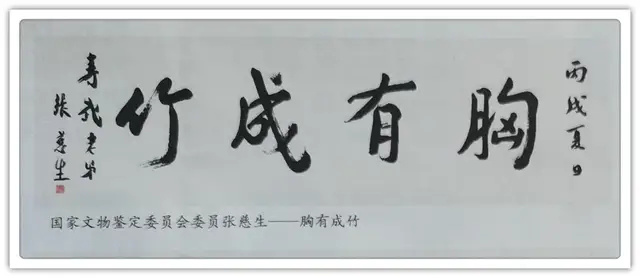 丙戌夏日
胸有成竹
老弟
张慈生
国家文物鉴定委员会委员张慈生——胸有成竹